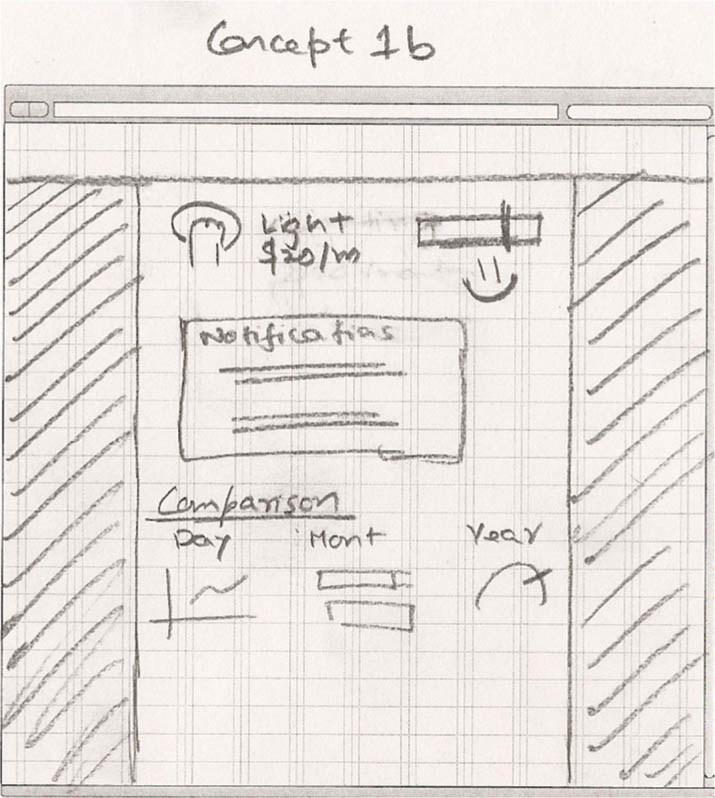 Concept 1b
Light
$20/m
Notifications
Comparison
Day Mont Year